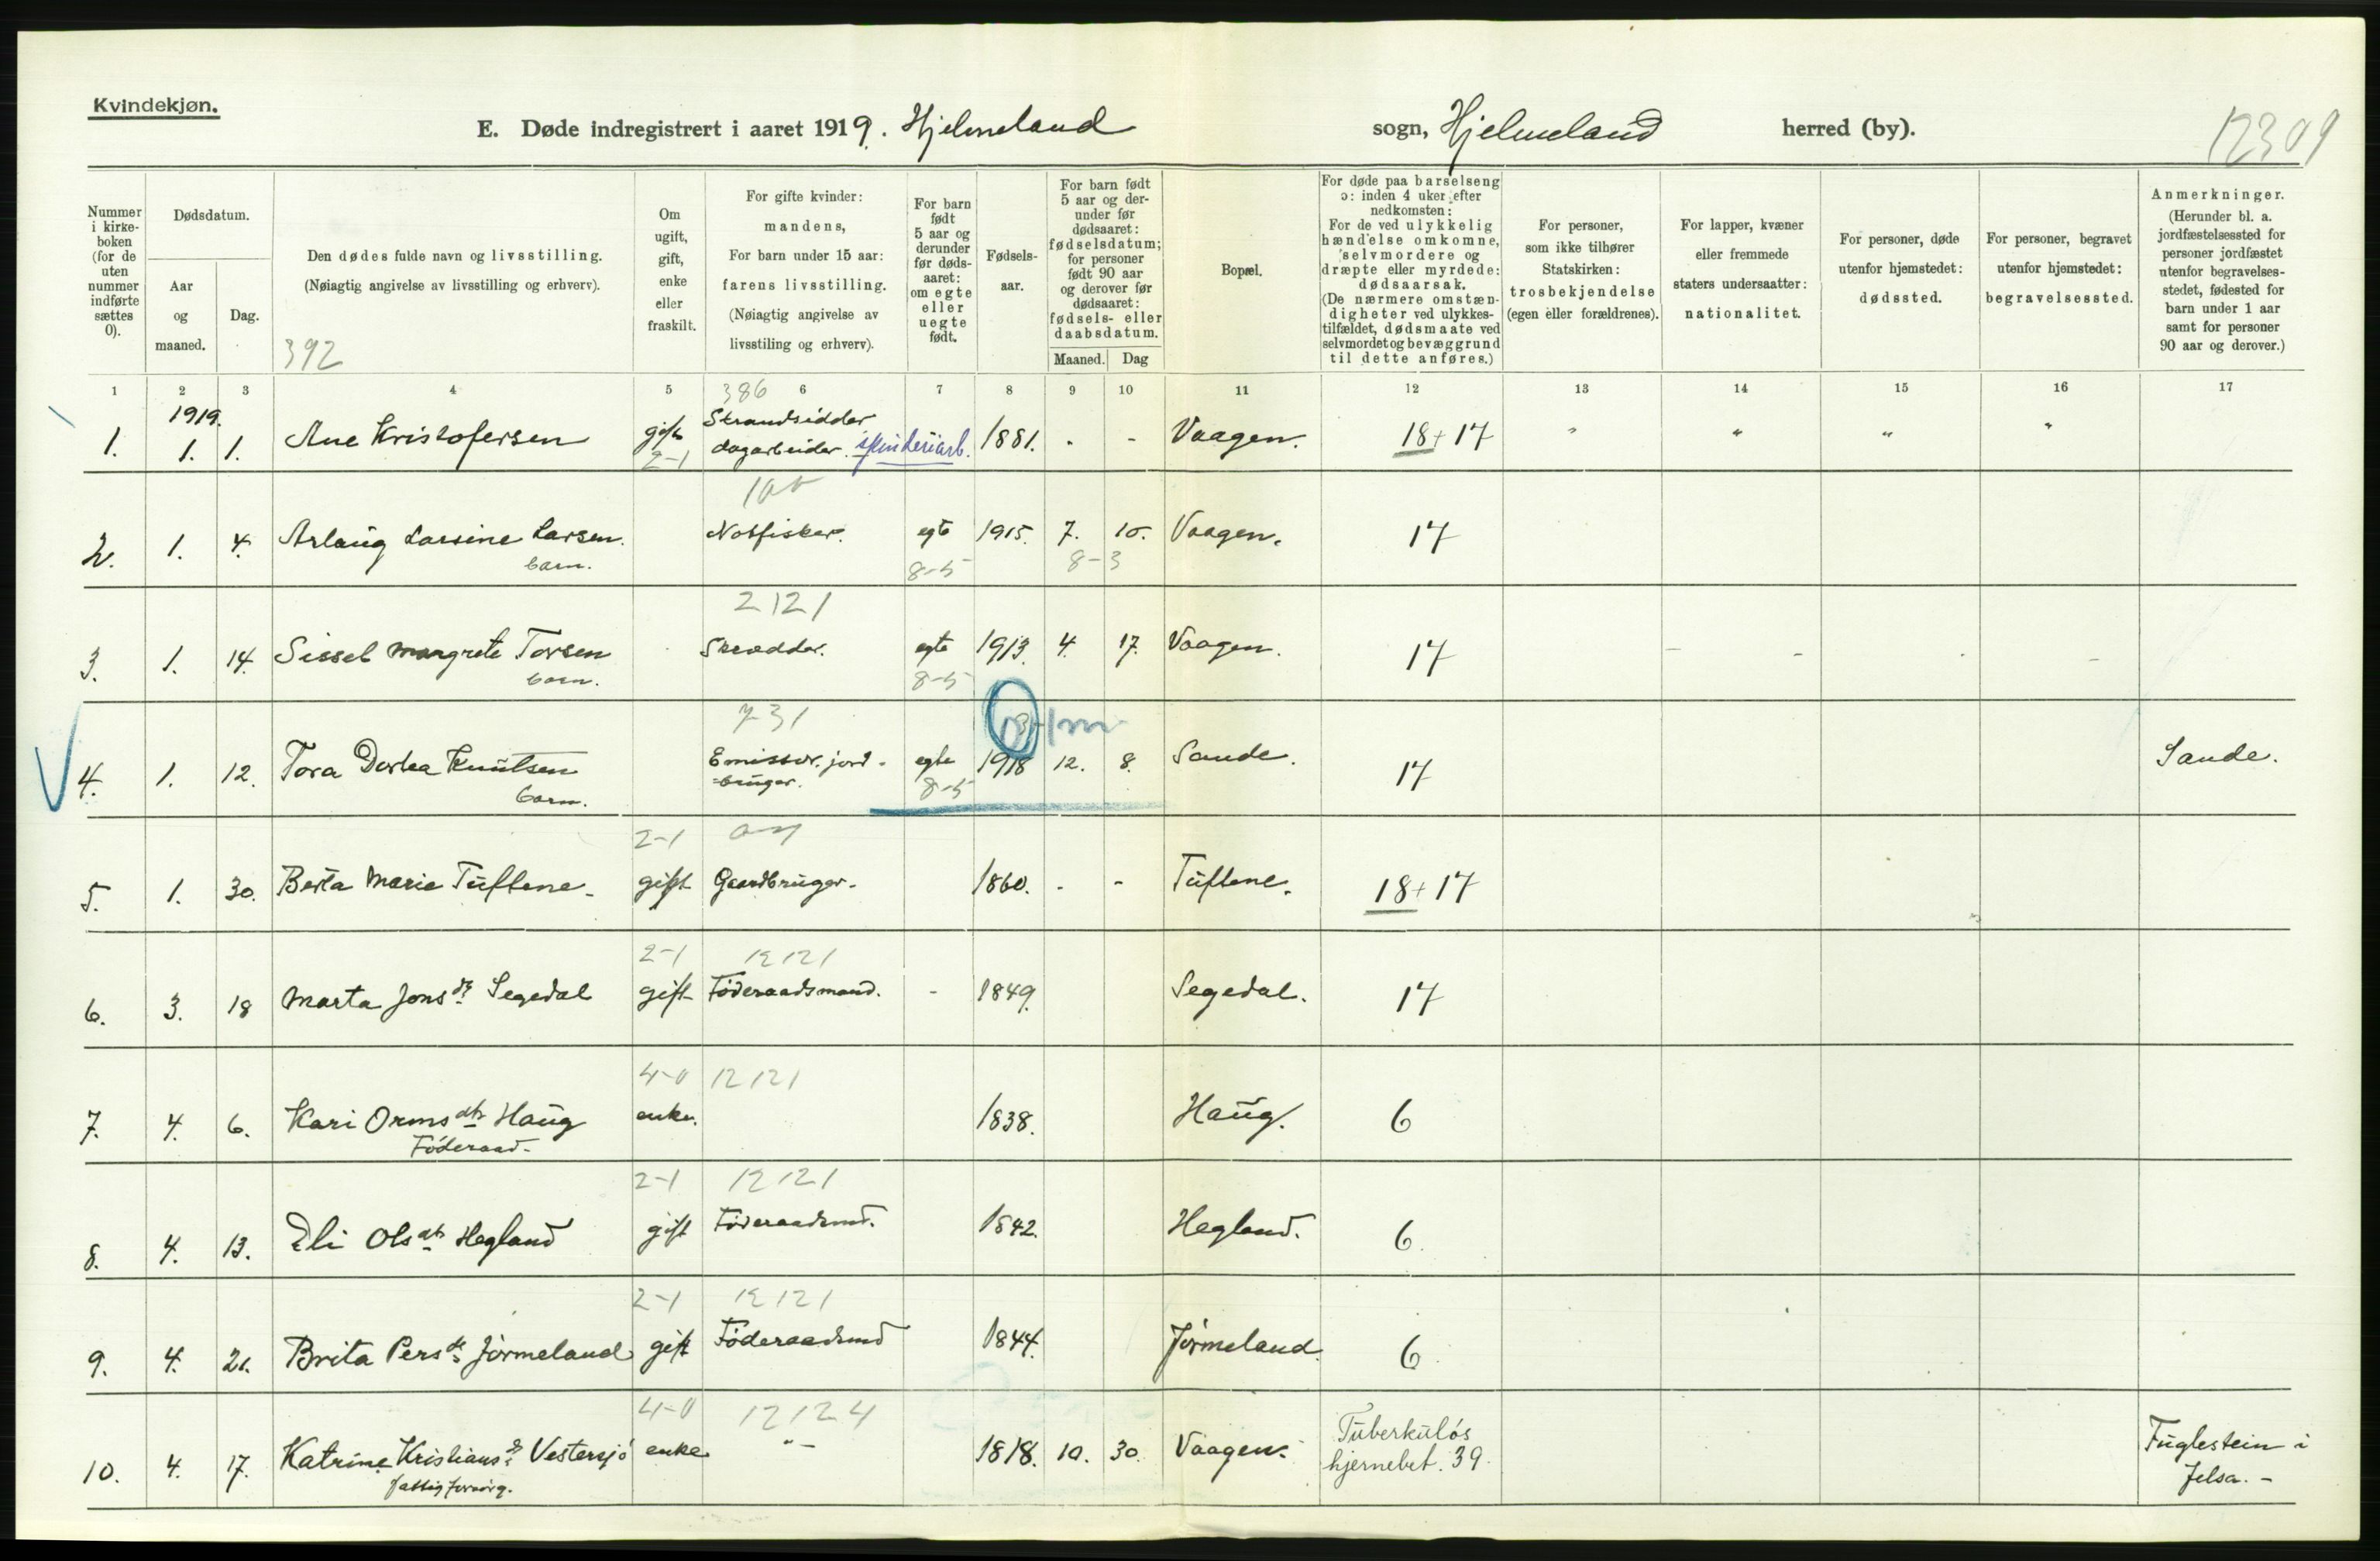 Kvindekjøn.
E. Døde indregistrert i aaret 1919. Hjelmeland sogn, Hjelmeland herred (by).
12309
Nummer i kirkeboken (for de uten nummer indførte sættes 0).
Dødsdatum.
Aar og maaned.
Dag.
Den dødes fulde navn og livsstilling.
(Nøiagtig angivelse av livsstilling og erhverv).
392
Om ugift, gift, enke eller fraskilt.
For gifte kvinder:
mandens,
For barn under 15 aar:
farens livsstilling.
(Nøiagtig angivelse av
livsstiling og erhverv).
For barn født 5 aar og derunder før dødsaaret: om egte eller uegte født.
Fødselsaar.
For barn født 5 aar og derunder før dødsaaret: fødselsdatum; for personer født 90 aar og derover før dødsaaret: fødsels- eller daabsdatum.
Maaned. Dag
Bopæl.
For døde paa barselseng
ɔ: inden 4 uker efter
nedkomsten:
For de ved ulykkelig
hændelse omkomne,
selvmordere og
dræpte eller myrdede:
dødsaarsak.
(De nærmere omstæn-
digheter ved ulykkes-
tilfældet, dødsmaate ved
selvmordet og bevæggrund
til dette anføres.)
For personer,
som ikke tilhører
Statskirken:
trosbekjendelse
(egen eller forældrenes).
For lapper, kvæner
eller fremmede
staters undersaatter:
nationalitet.
For personer, døde
utenfor hjemstedet:
dødssted.
For personer, begravet
utenfor hjemstedet:
begravelsessted.
Anmerkninger.
(Herunder bl. a.
jordfæstelsessted for
personer jordfæstet
utenfor begravelses-
stedet, fødested for
barn under 1 aar
samt for personer
90 aar og derover.)
1 2 3 4 5 6 7 8 9 10 11 12 13 14 15 16 17
386
1919.
1. 1. 1. Ane Kristofersen gift Strandsidder dagarbeider. spinderiarb. 1881. - - Vaagen. 18+17 " " " "
2-1
2. 1. 4. Arlaug Larsine Larsen. Notfisker. egte 1915. 7. 10. Vaagen. 17
barn. 8-5 8-3
2121
3. 1. 14. Sissel Margrete Torsen Skrædder. egte 1913. 4. 17. Vaagen. 17 - - - -
barn. 8-5
731
4. 1. 12. Tora Dortea Knutsen Emissær. jord- egte 1918 12. 8. Sande. 17 Sande.
barn. =bruger. 8-5
2-1
5. 1. 30. Berta Marie Tuftene. gift Gaardbruger. 1860. - - Tuftene. 18+17
2-1 12121
6. 3. 18 Marta Jonsdt Segedal gift Föderaadsmand. - 1849. Segedal. 17
4-0 12121
7. 4. 6. Kari Ormsdtr Haug enke. 1838. Haug. 6
Föderaad.
2-1 12121
8. 4. 13. Eli Olsdtr Hegland gift Föderaadsmd. 1842. Hegland. 6.
2-1 12121
9. 4. 21. Brita Persdt Jörmeland gift Föderaadsmd 1844. Jörmeland. 6
4-0 12124
10. 4. 17. Katrine Kristiansdt Vestersjö enke "- 1818. 10. 30. Vaagen. Tuberkulös hjernebet. 39. Fuglestein i
fattigforsörg. Jelsa. -